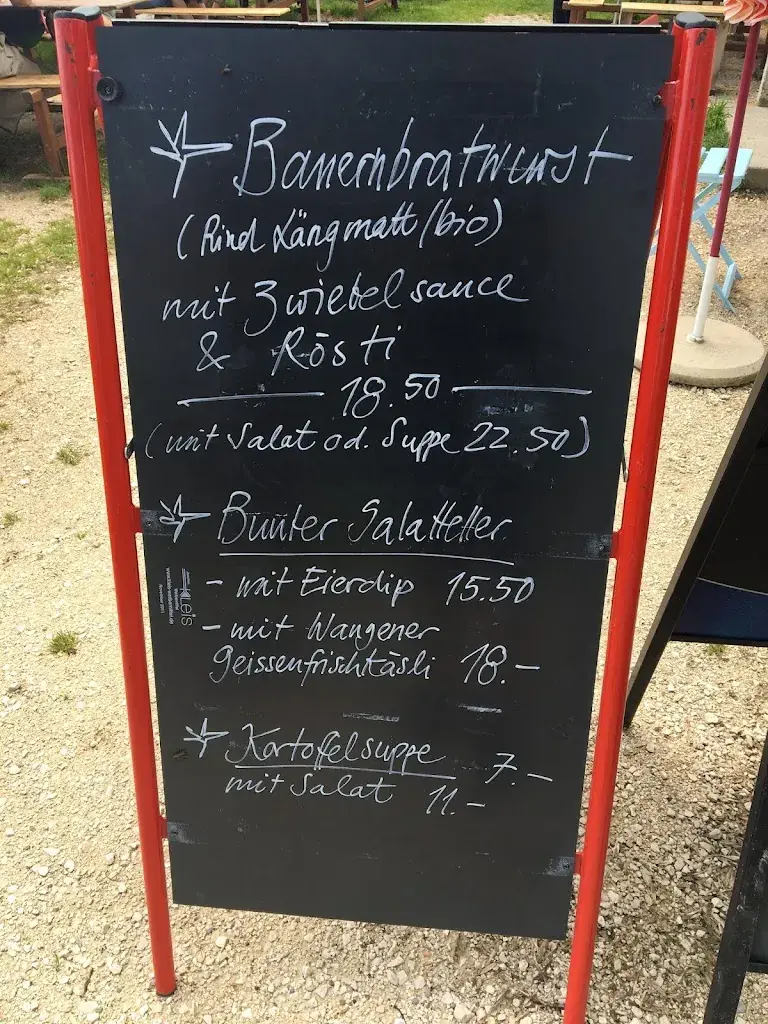 Bauernbratwurst
(Rind Längmatt/bio)
mit Zwiebelsauce
& Rösti
18.50
(mit Salat od. Suppe 22.50)
Bunter Salatteller
- mit Eierdip 15.50
- mit Wangener
geissenfrischkäsli 18.-
Kartoffelsuppe 7.-
mit Salat 11.-